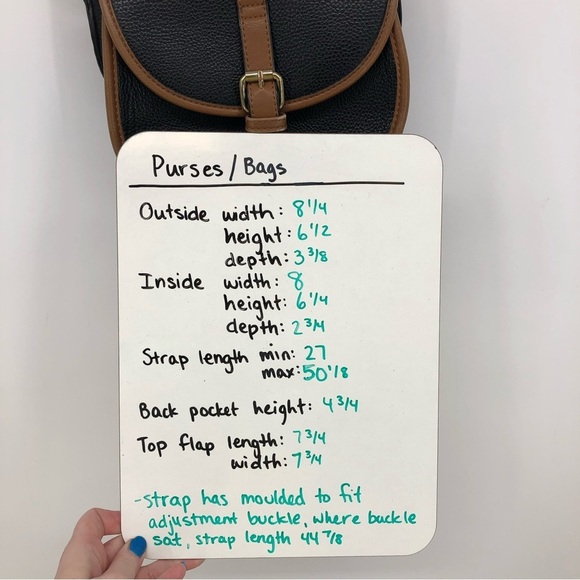 Purses/Bags
Outside width: 8 1/4
height: 6 1/2
depth: 3 3/8
Inside width: 8
height: 6 1/4
depth: 2 3/4
Strap length min: 27
max: 50 1/8
Back pocket height: 4 3/4
Top flap length: 7 3/4
width: 7 3/4
-strap has moulded to fit
adjustment buckle, where buckle
sat, strap length 44 7/8